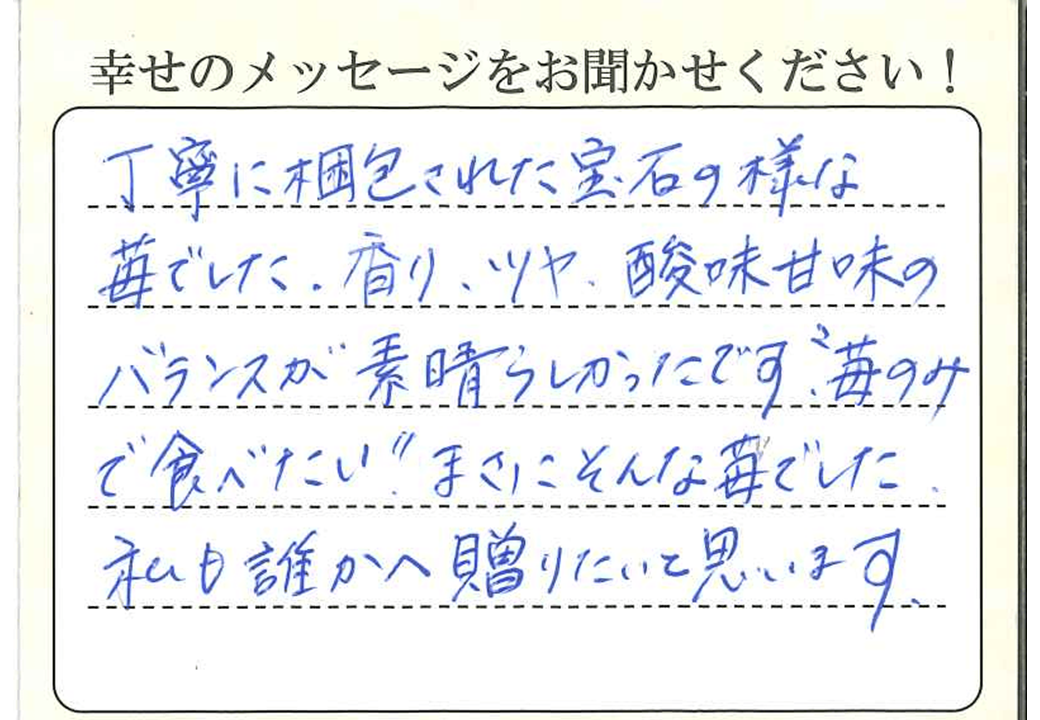 幸せのメッセージをお聞かせください！
丁寧に梱包された宝石の様な
苺でした。香り、ツヤ、酸味甘味の
バランスが素晴らしかったです。〝苺のみ
で食べたい〟まさにそんな苺でした。
私も誰かへ贈りたいと思います。